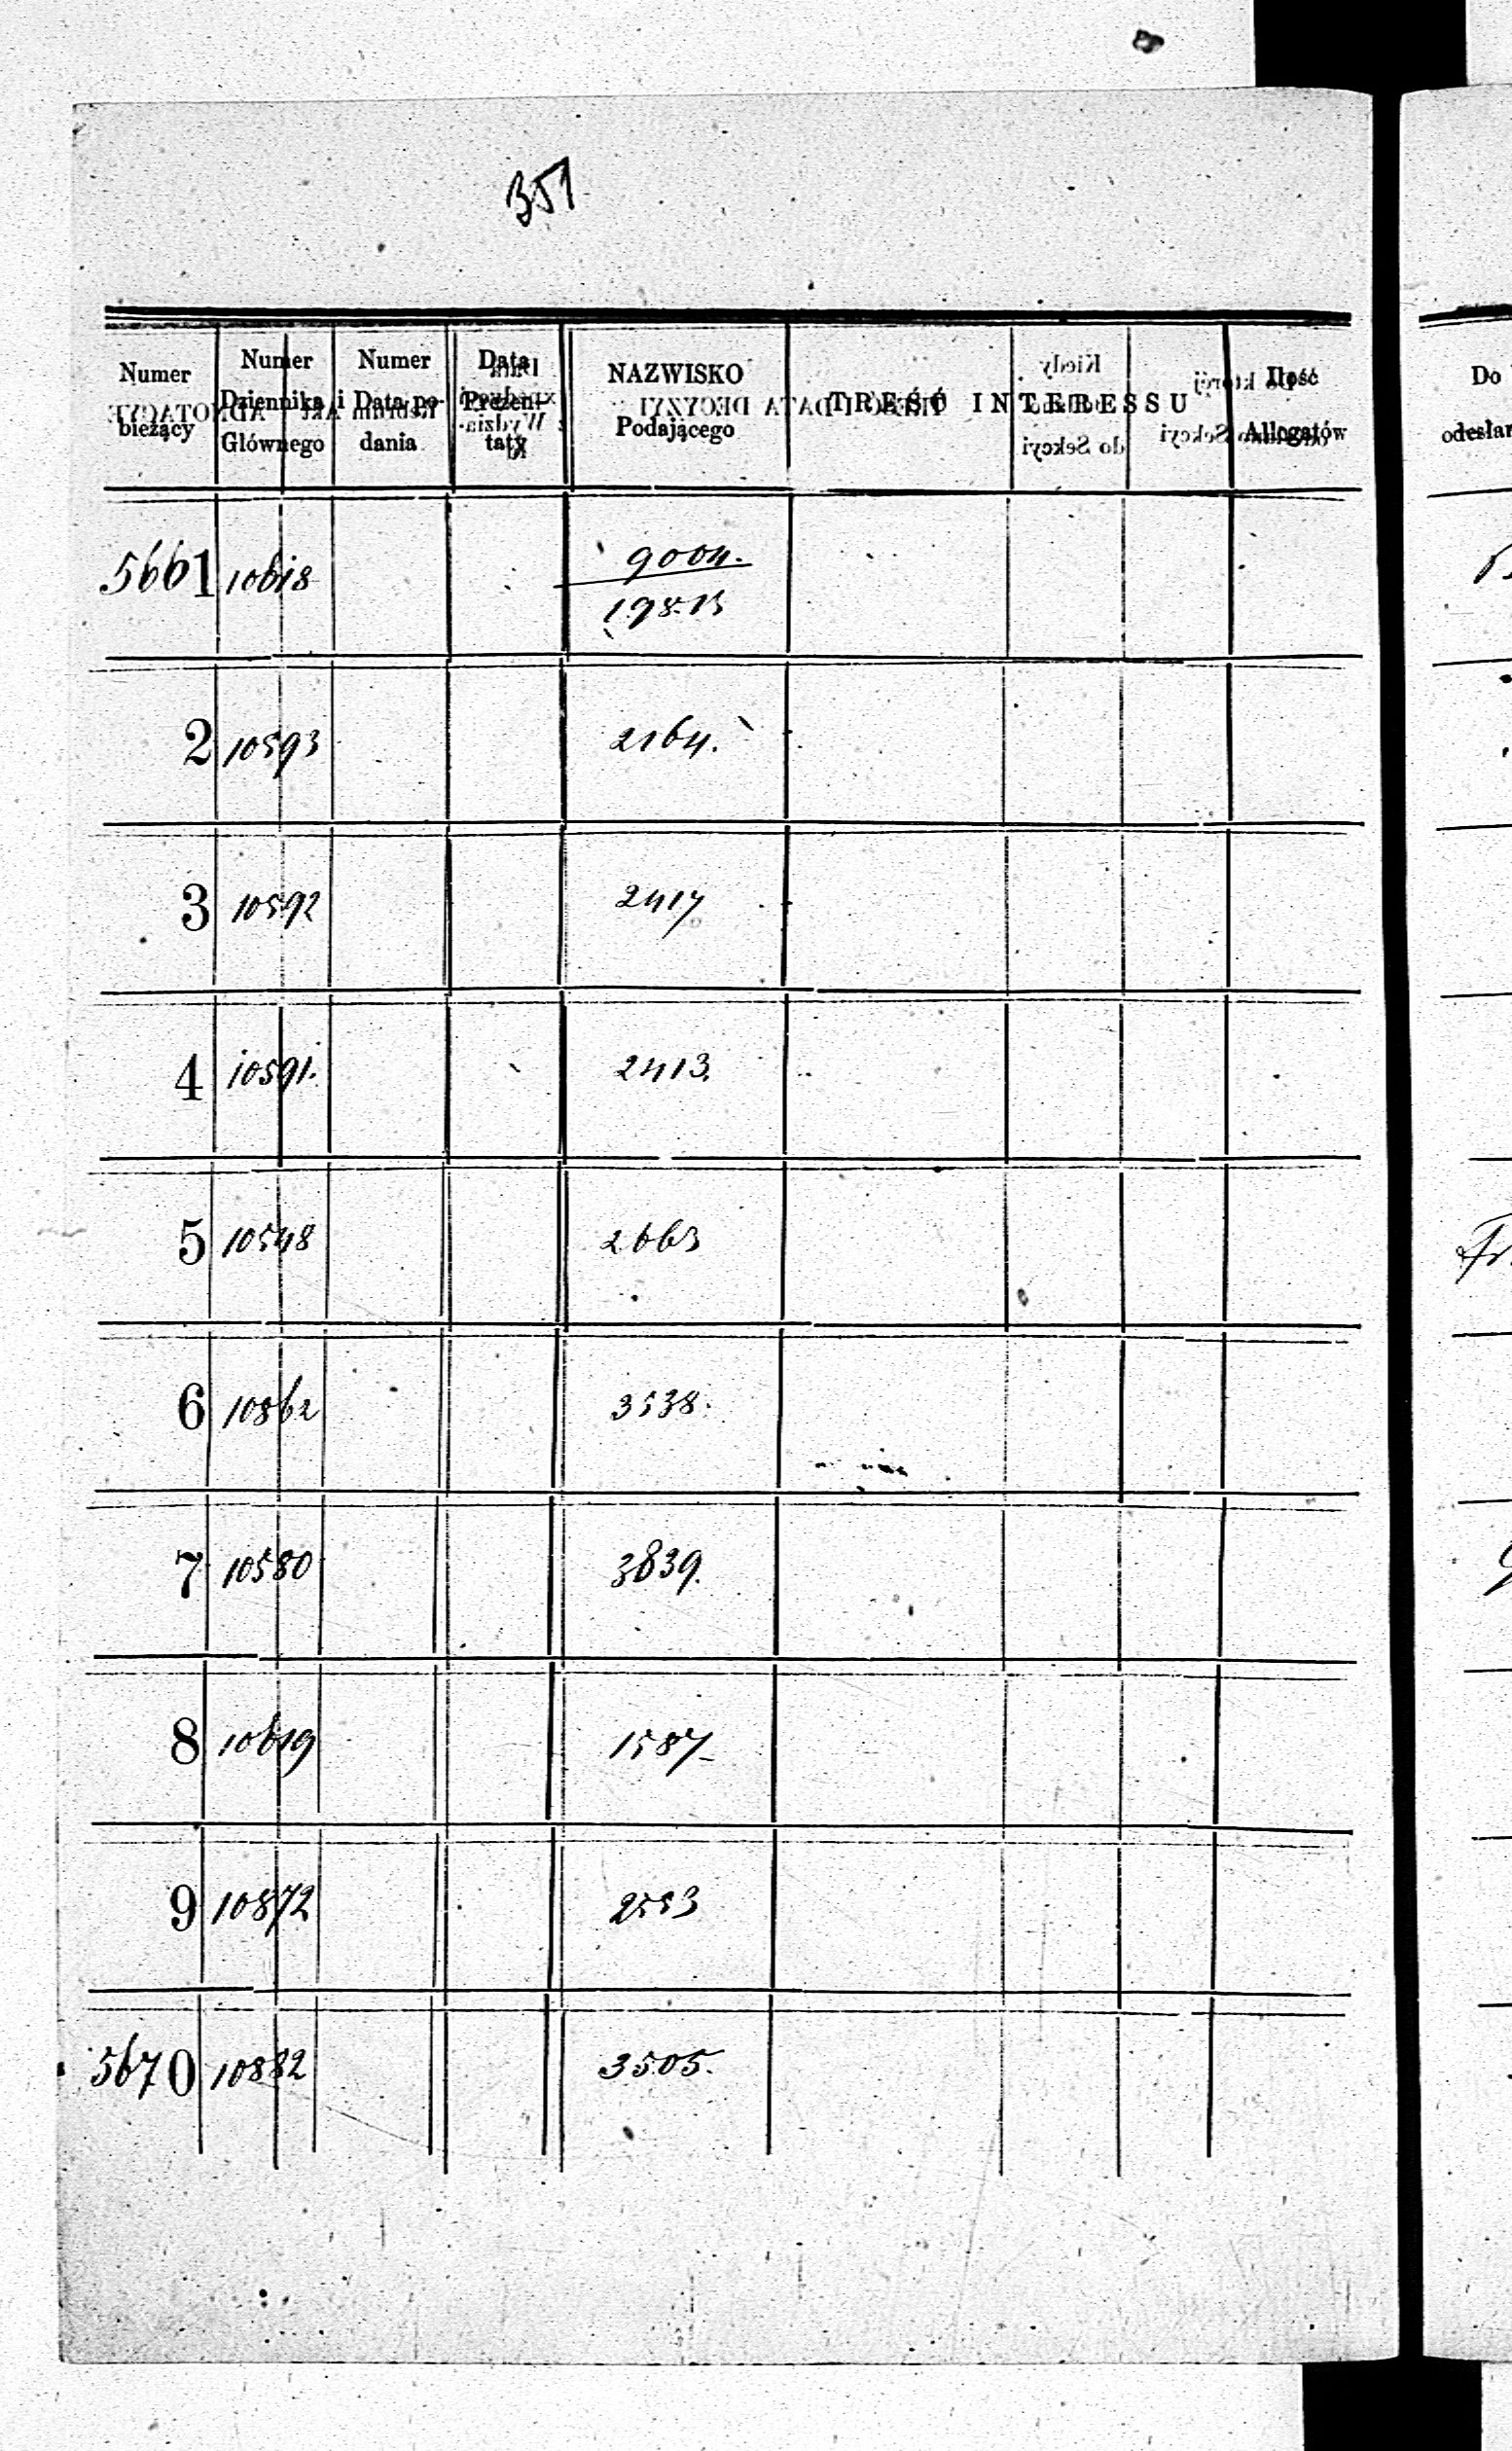 351
Numer bieżący | Numer Dziennika Głównego | Numer i Data podania | Data Prezentaty | NAZWISKO Podającego | TREŚĆ INTERESSU | Ilość Allegatów | Do
5661 | 10618 | 9004.
19813
2 | 10593 | 2164.
3 | 10592 | 2417
4 | 10591. | 2413.
5 | 10548 | 2663
6 | 10862 | 3538.
7 | 10580 | 3839.
8 | 10619 | 1587
9 | 10872 | 2553
5670 | 10882 | 3505.